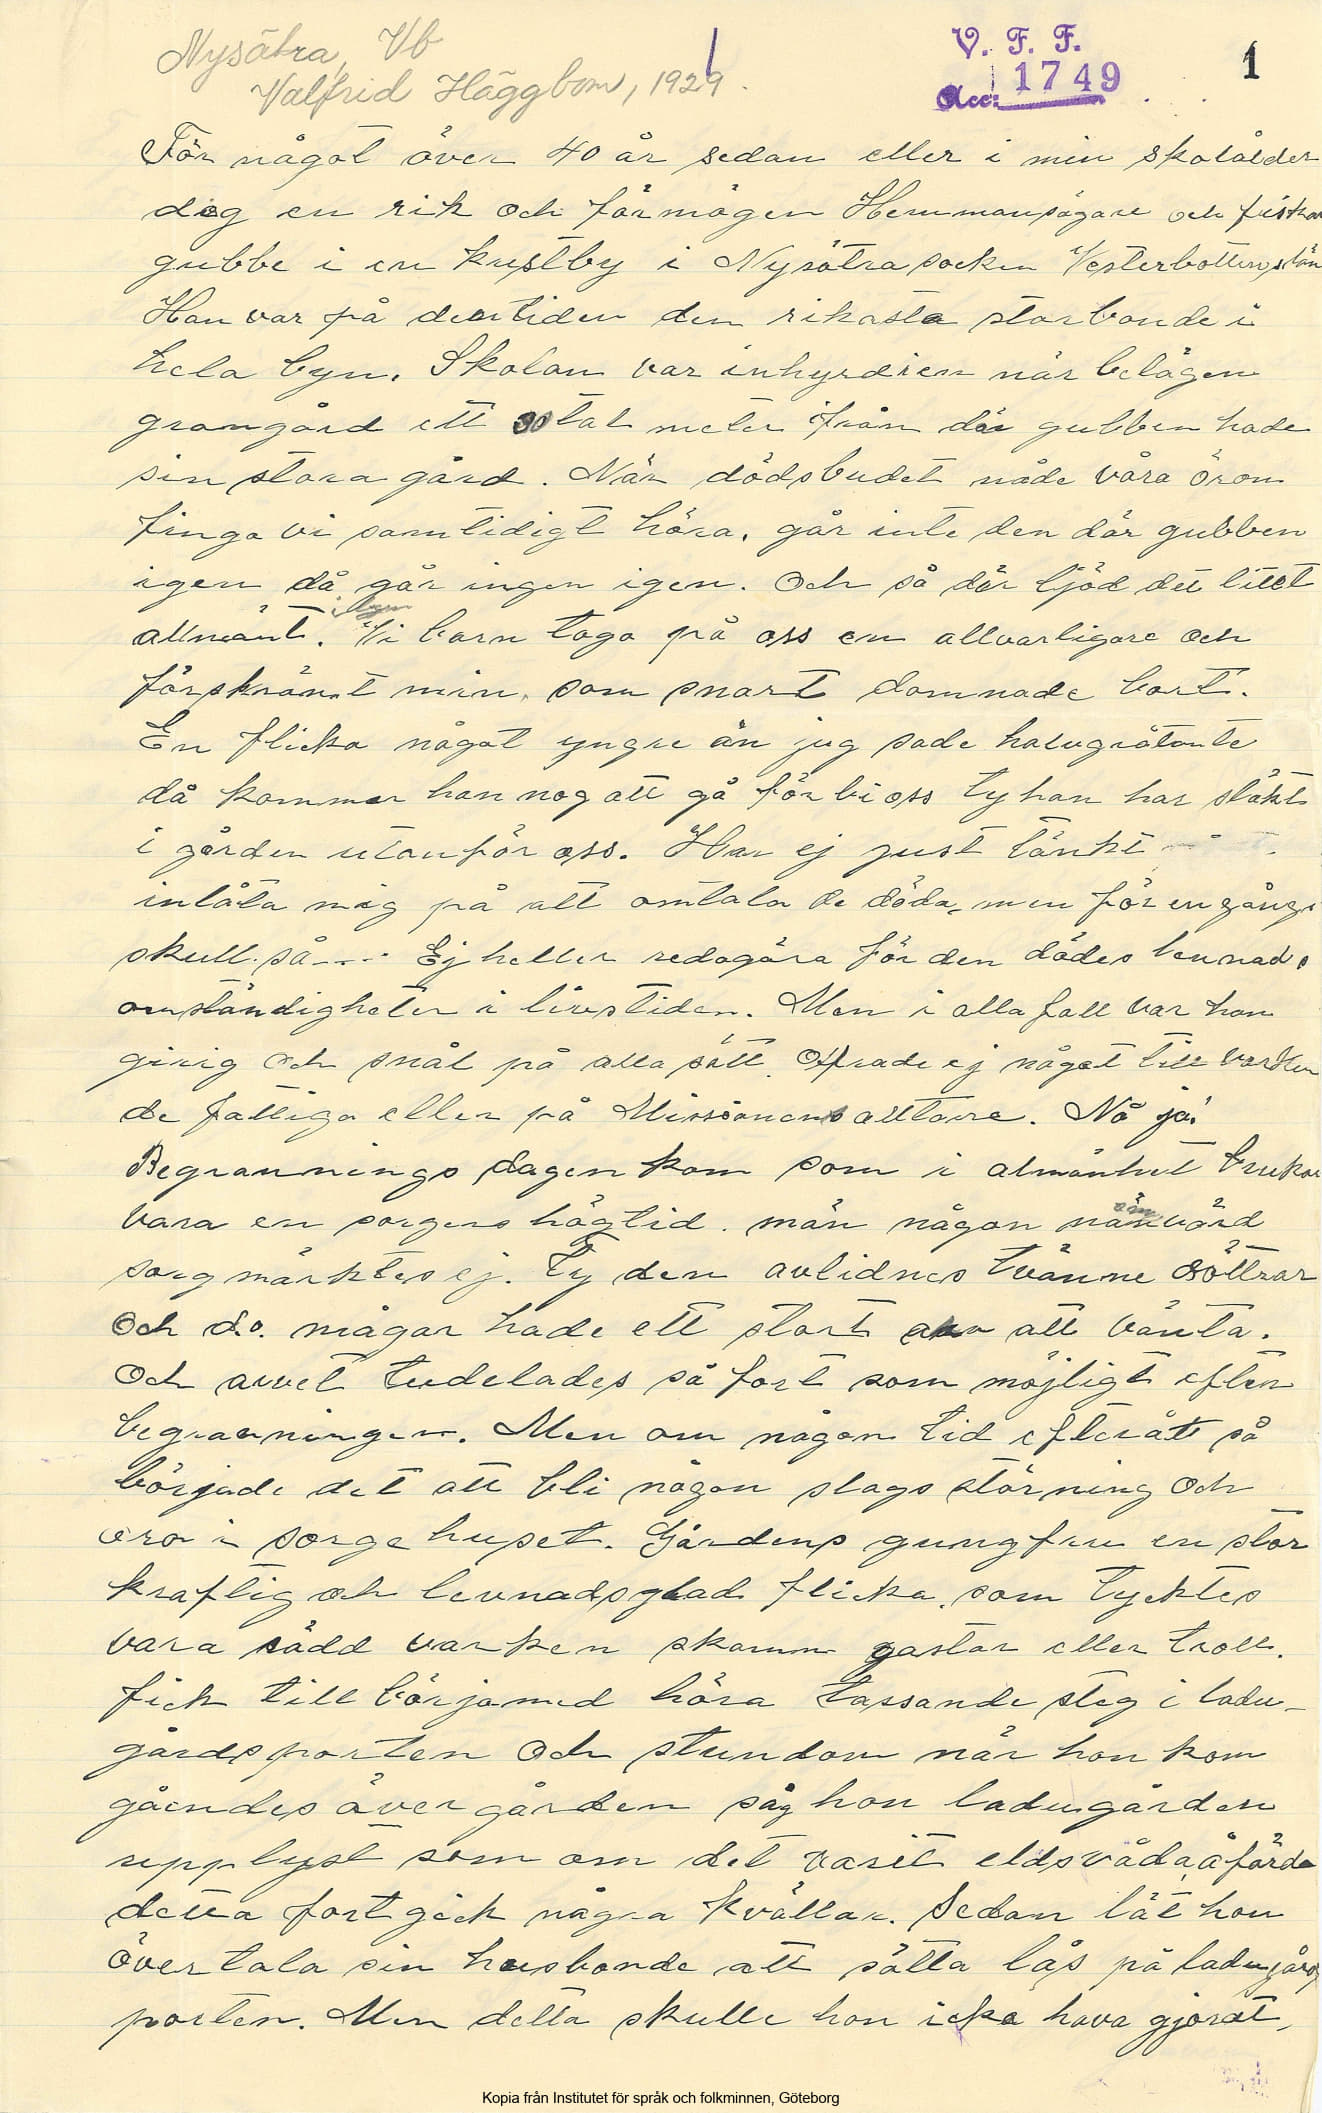 Nysätra, Vb
Valfrid Häggbom, 1929.
V. F. F.
Acc: 1749
1
För något över 40 år sedan eller i min skolålder
dog en rik och förmögen Hemmansägare och fiskar
gubbe i en kustby i Nysätra socken Vesterbottens län
Han var på den tiden den rikasta storbonde i
hela byn. Skolan var inhyrd i en när belägen
grangård ett 30 tal meter från där gubben hade
sin stora gård. När dödsbudet nåde våra öron
finga vi samtidigt höra, går inte den där gubben
igen då går ingen igen. Och så där ljöd det litet
allmänt. i byn Vi barn togo på oss en allvarligare och
förskrämt min, som snart domnade bort.
En flicka något yngre än jag sade halvgråtante
då kommer han nog att gå förbi oss ty han har släkt
i gården utanför oss. Har ej just tänkt
inlåta mig på att omtala de döda, men för en gångs
skull så---- Ej heller redogöra för den dödes levnads
omständigheter i livstiden. Men i alla fall var han
girig och snål på alla sätt. Offrade ej något till varken
de fattiga eller på Missionens alltare. Nå ja!
Begravnings dagen kom som i almänhet brukar
vara en sorgens högtid. män någon nämvärd
sorg märktes ej. Ty den avlidnes tvänne döttrar
Och d.o. mågar hade ett stort arv att vänta.
Och arvet tudelades så fort som möjligt efter
begravningen. Men om någon tid efteråt så
började det att bli någon slags störning och
oro i sorgehuset. Gårdens gungfru en stor
kraftig och levnadsglad flicka, som tycktes
vara rädd varken skamm gastar eller troll.
fick till börja med höra tassande steg i ladu-
gårdsporten Och stundom när hon kom
gåendes över gården såg hon ladugården
upplyst som om det varit eldsvåda å färde
detta fortgick några kvällar. Sedan lät hon
övertala sin husbonde att sätta lås på ladugårds
porten. Men detta skulle hon icke hava gjorat,
Kopia från Institutet för språk och folkminnen, Göteborg